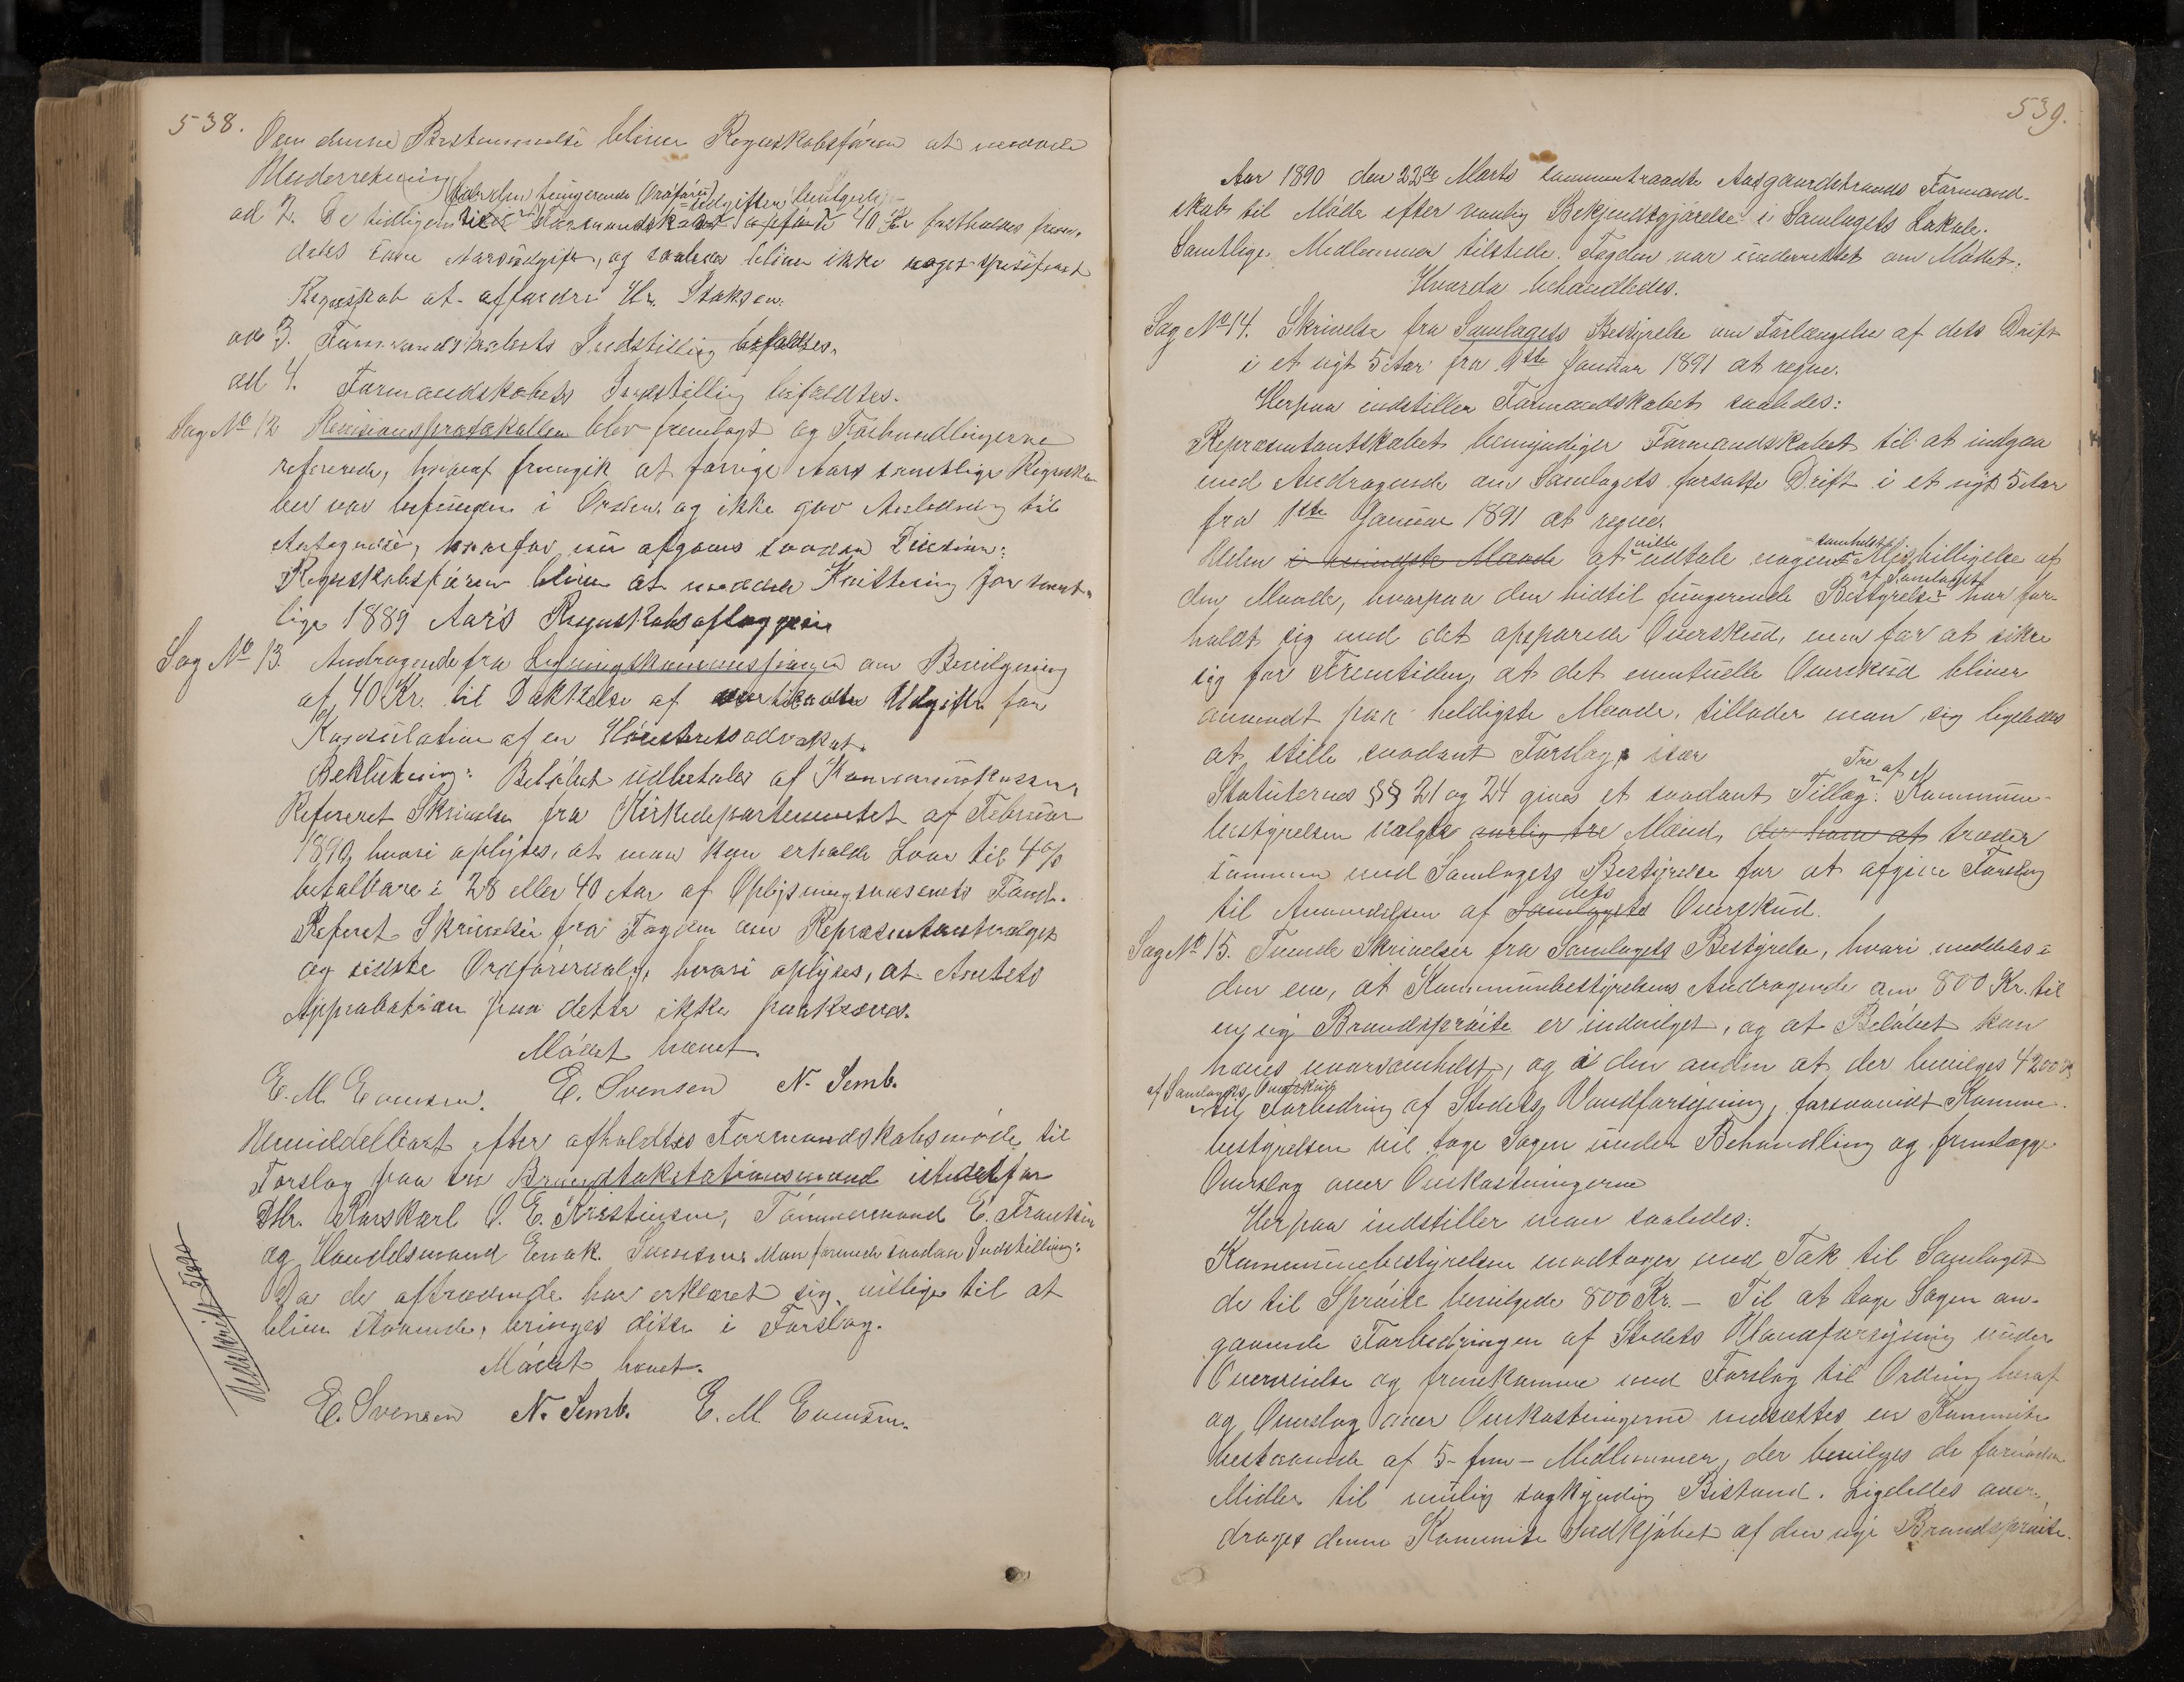 538.
Om denne Bestemmelse bliver Regnskabsføreren at meddele
Underretning
ad 2. De tidligere fungerende Ordfører Udgifter bevilgede
til Formandskabet 40 Kr fastholdes frem-
deles som Aarsudgift, og saaledes bliver ikke noget specificeret
Regnskab at affordre Hr. Isaksen.
ad 3. Formandskabets Indstilling bifaldtes.
ad 4. Formandskabets Indstilling bifaldtes.
Sag No 12 Revisionsprotokollen blev fremlagt og Forhandlingerne
refererede, hvoraf fremgik at forrige Aars samtlige Regnska-
ber var befundne i Orden og ikke gav Anledning til
Antegnelse, hvorfor nu afgaves saadan Decision:
Regnskabsføreren bliver at meddele Kvittering for samt-
lige 1889 Aars Regnskabsaflæggelse
Sag No 13. Andragende fra Ligningskommissionen om Bevilgning
af 40 Kr. til Dækkelse af Udgifter for
Konsulation af en Høiesteretsadvokat.
Beslutning: Beløbet udbetales af Kommunekassen.
Refereret Skrivelse fra Kirkedepartementet af Februar
1890, hvori oplyses, at man kan erholde Laan til 4 %
betalbare i 28 eller 40 Aar af Oplysningsvæsenets Fond.
Referet Skrivelse fra Fogden om Repræsentantvalget
og sidste Ordførervalg, hvori oplyses, at Amtets
Approbation paa dette ikke paakræves.
Mødet hævet.
E. M. Evensen. E. Svensen N. Semb.
Umiddelbart efter afholdtes Formandskabsmøde til
Forslag paa en Brandtakstationsmand istedetfor
DHr. Karskarl O. E. Kristensen, Tømmermand E. Frantsen
og Handelsmand Enok. Man foreslaar saadan Indstilling:
Da de aftrædende har erklæret sig villige til at
blive staaende, bringes disse i Forslag.
Mødet hævet.
Udskrift 5/4 90
E. Svensen N. Semb. E. M. Evensen.
539.
Aar 1890 den 22de Marts sammentraadte Aasgaardstrands Formand-
skab til Møde efter vanlig Bekjendtgjørelse i Samlagets Lokale.
Samtlige Medlemmer tilstede. Fogden var underrettet om Mødet.
Hvorda behandledes.
Sag No 14. Skrivelse fra Samlagets Bestyrelse om Forlængelse af dets Drift
i et nyt 5 Aar fra 1ste Januar 1891 at regne.
Herpaa indstiller Formandskabet saaledes:
Repræsentantskabet bemyndiger Formandskabet til at indgaa
med Andragende om Samlagets forsatte Drift i et nyt 5 Aar
fra 1ste Januar 1891 at regne.
Uden i mindste Maade at ville udtale nogensomhelst Misbilligelse af
den Maade, hvorpaa den hidtil fungerende Bestyrelse af Samlaget har for-
holdt sig med det opsparede Overskud, men for at sikre
sig for Fremtiden, at det eventuelle Overskud bliver
anvendt paa heldigste Maade, tillader man sig ligeledes
at stille saadant Forslag:
Statuternes §§ 21 og 24 gives et saadant Tillæg: Tre af Kommune-
bestyrelsen valgte aarlig tre Mænd, der have at træder
sammen med Samlagets Bestyrelse for at afgive Forslag
til Anvendelsen af Samlagets dets Overskud.
Sag No 15. Tvende Skrivelser fra Samlagets Bestyrelse, hvori meddeles i
den ene, at Kommunebestyrelsens Andragende om 800 Kr. til
en ny Brandsprøite er indvilget, og at Beløbet kan
haves naarsomhelst, og i den anden at der bevilges 4200 Kr
af Samlagets Overskud
til Forbedring af Stedets Vandforsyning, forsaavidt Kommune-
bestyrelsen vil tage Sagen under Behandling og fremlægge
Overslag over Omkostningerne
Herpaa indstiller man saaledes:
Kommunebestyrelsen modtager med Tak til Samlaget
de til Sprøite bevilgede 800 Kr. — Til at tage Sagen an-
gaaende Forbedringen af Stedets Vandforsyning under
Overveielse og fremkomme med Forslag til Ordning heraf
og Overslag over Omkostningerne nedsættes en Kommite
bestaaende af 5 - fem - Medlemmer, der bevilges de fornødne
Midler til mulig sagkyndig Bistand. Ligeledes over-
drages denne Kommite Indkjøbet af den nye Brandsprøite.